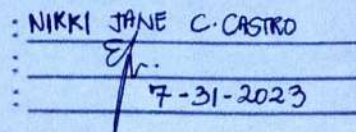 : NIKKI JANE C. CASTRO
:
: 7-31-2023